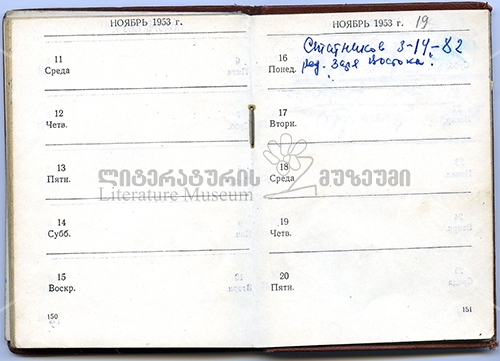 НОЯБРЬ 1953 г.
11
Среда
12
Четв.
13
Пятн.
14
Субб.
15
Воскр.
150
НОЯБРЬ 1953 г. 19
16
Понед.
Статников 3-14-82
ред. Заря Востока.
17
Вторн.
18
Среда
19
Четв.
20
Пятн.
151
ლიტერატურის მუზეუმი
Literature Museum